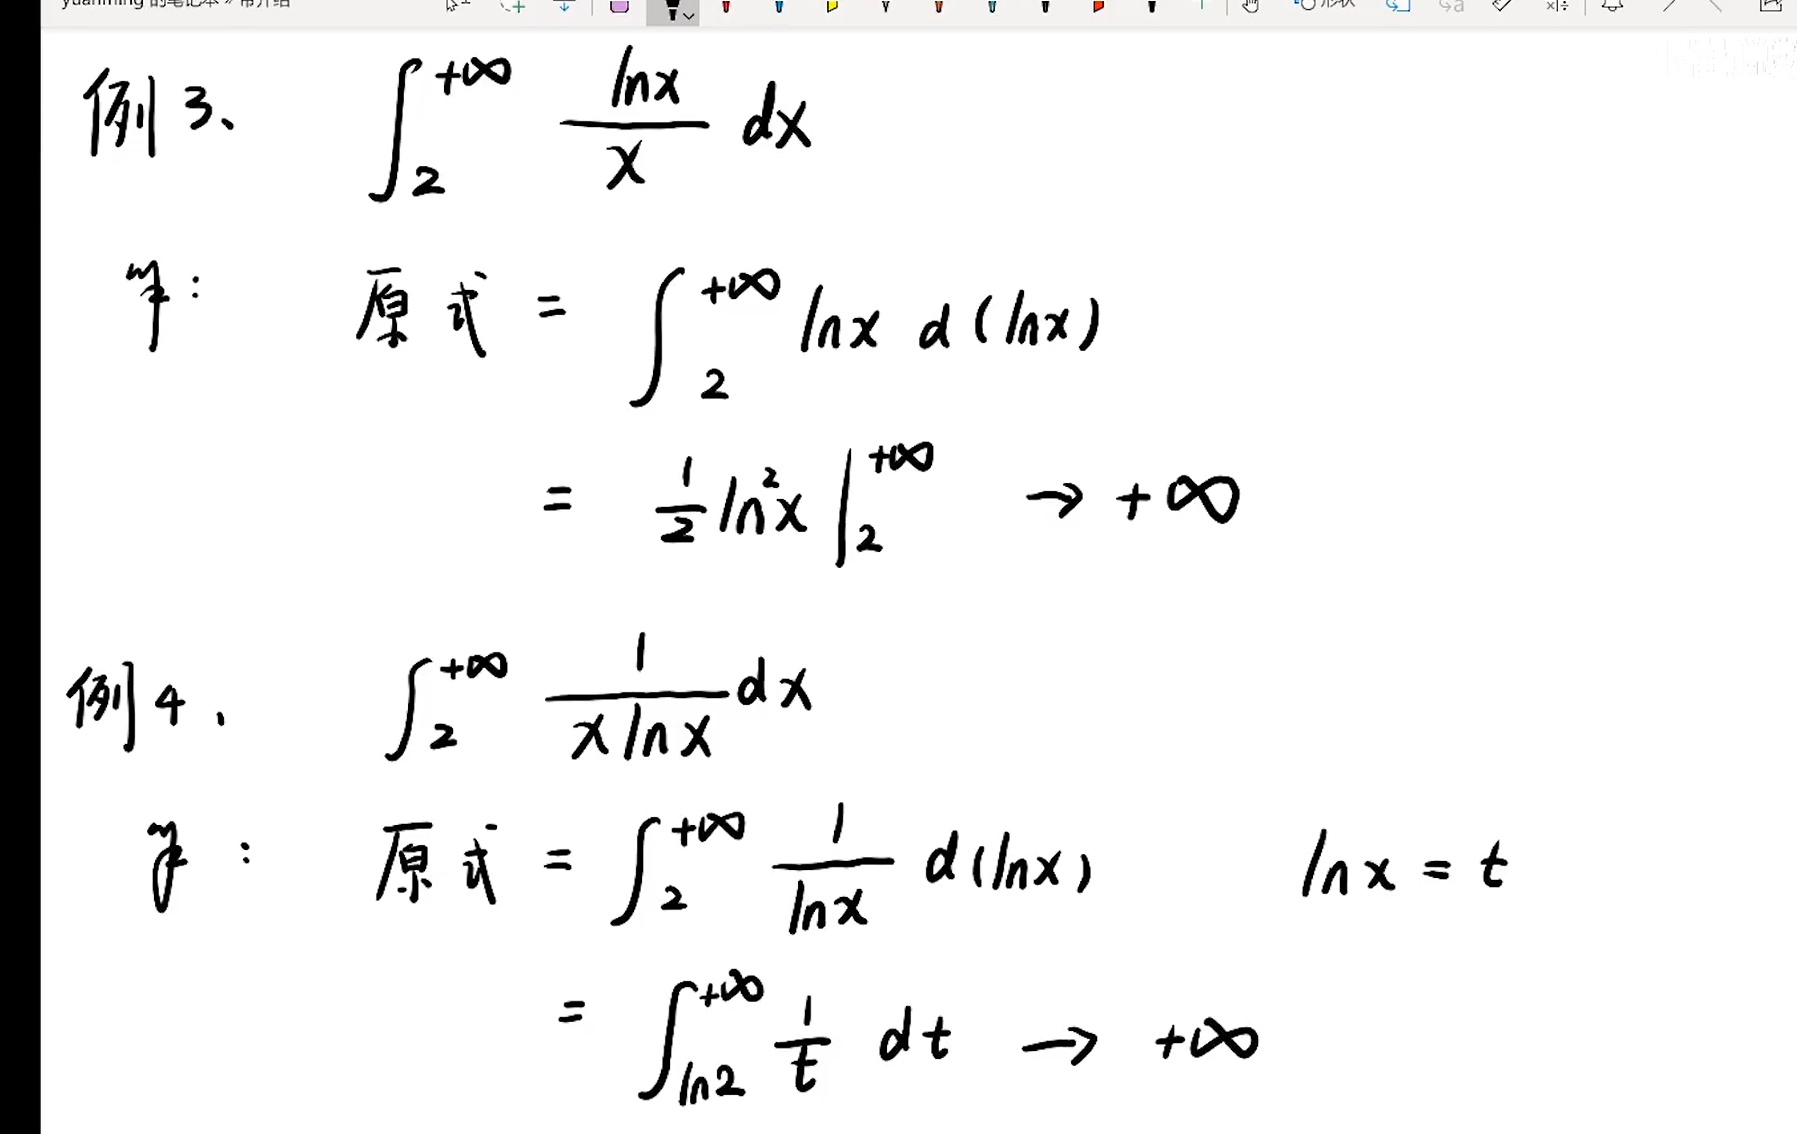 例3、 ∫₂^{+∞} lnx/x dx
解: 原式 = ∫₂^{+∞} lnx d(lnx)
= 1/2 ln²x |₂^{+∞} → +∞
例4、 ∫₂^{+∞} 1/(x lnx) dx
解: 原式 = ∫₂^{+∞} 1/lnx d(lnx) lnx = t
= ∫_{ln2}^{+∞} 1/t dt → +∞